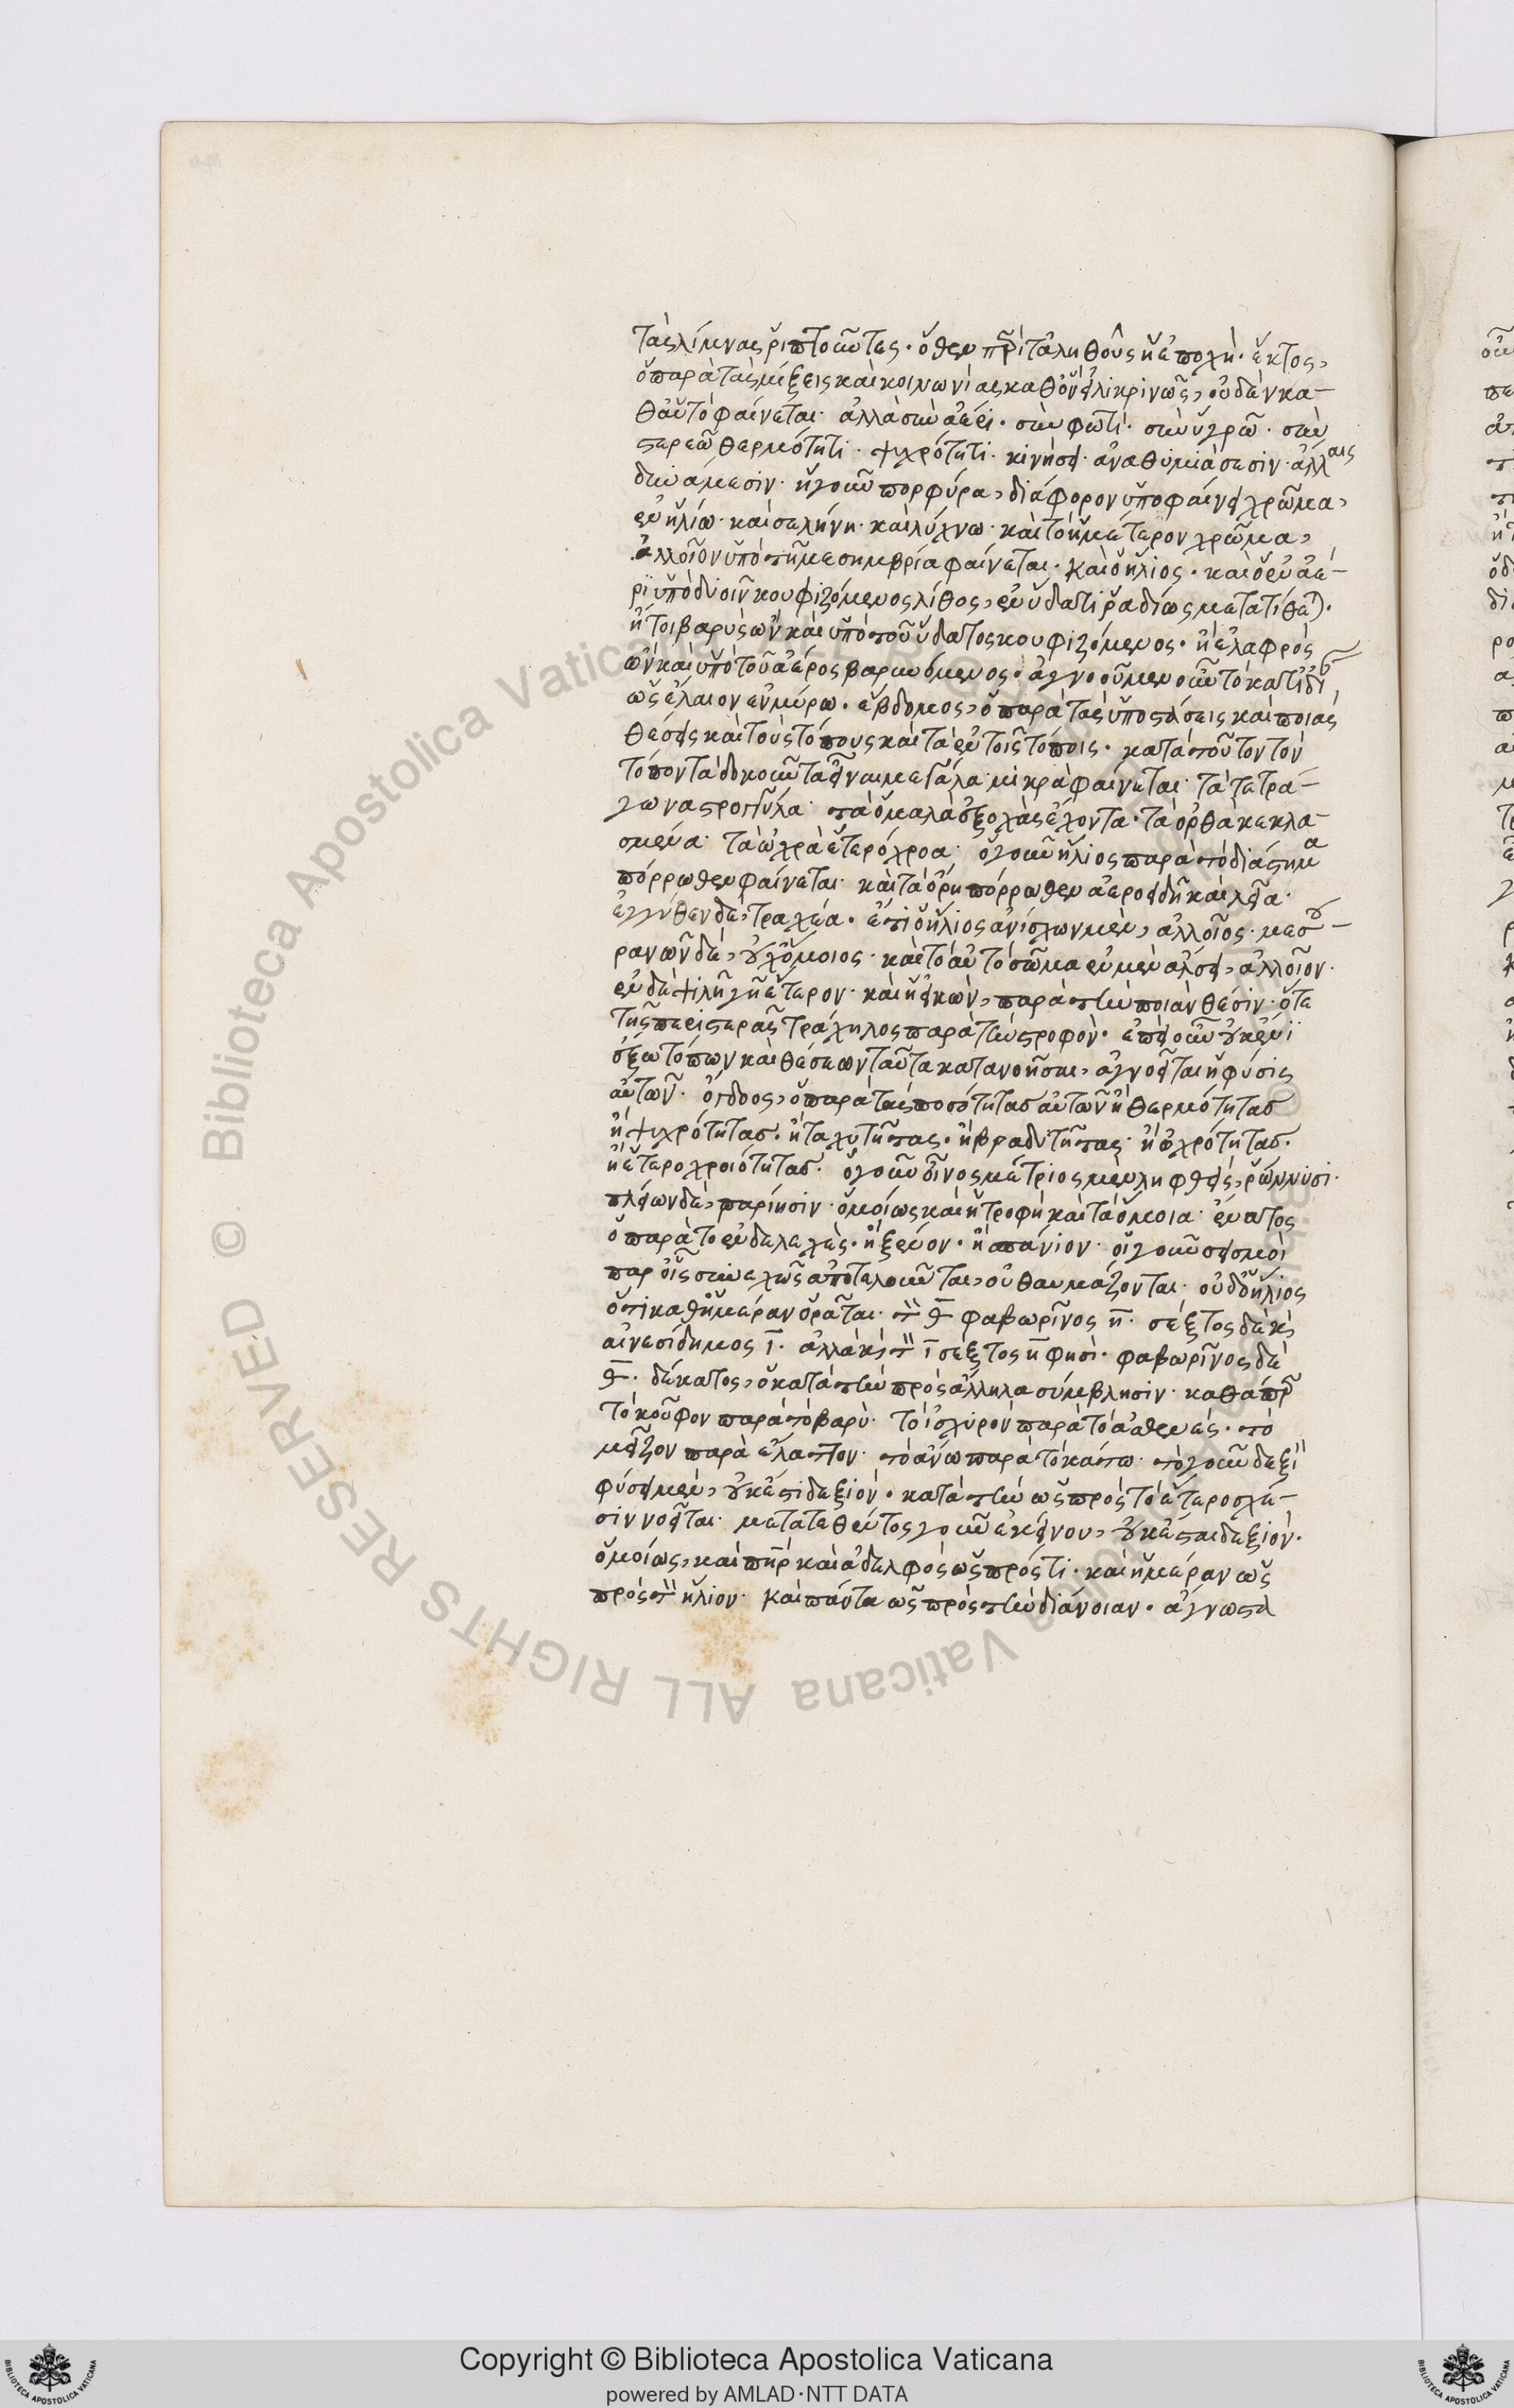 τὰς λίμνας ῥιπτοῦντες· ὅθεν περὶ τἀληθοῦς ἡ ἐποχή· ἕκτος,
ὁ παρὰ τὰς μίξεις καὶ κοινωνίας καθ' ὃν εἰλικρινῶς, οὐδὲν κα-
θ' αὑτὸ φαίνεται· ἀλλὰ σὺν ἀέρι· σὺν φωτί· σὺν ὑγρῶ· σὺν
στερεῶ θερμότητι· ψυχρότητι· κινήσει· ἀναθυμιάσεσιν· ἄλλαις
δυνάμεσιν· ἡ γοῦν πορφύρα, διάφορον ὑποφαίνει χρῶμα,
ἐν ἡλίω· καὶ σελήνη· καὶ λύχνω· καὶ τὸ ἡμέτερον χρῶμα,
ἀλλοῖον ὑπὸ τῆ μεσημβρία φαίνεται· καὶ ὁ ἥλιος· καὶ ὁ ἐν ἀέ-
ρι ὑπὸ δυοῖν κουφιζόμενος λίθος, ἐν ὕδατι ῥαδίως μετατίθεται·
ἤτοι βαρὺς ὢν καὶ ὑπὸ τοῦ ὕδατος κουφιζόμενος· ἢ ἐλαφρὸς
ὢν καὶ ὑπὸ τοῦ ἀέρος βαρυνόμενος· ἀγνοοῦμεν οὖν τὸ κατ' ἰδί
ὡς ἔλαιον ἐν μύρω· ἕβδομος, ὁ παρὰ τὰς ὑποστάσεις καὶ ποιὰς
θέσεις καὶ τοὺς τόπους καὶ τὰ ἐν τοῖς τόποις· κατὰ τοῦτον τὸν
τόπον τὰ δοκοῦντα εἶναι μεγάλα μικρὰ φαίνεται· τὰ τετρά-
γωνα στρογγύλα· τὰ ὁμαλὰ ἐξοχὰς ἔχοντα· τὰ ὀρθὰ κεκλα-
σμένα· τὰ ὠχρὰ ἑτερόχροα· ὁ γοῦν ἥλιος παρὰ τὸ διάστημα
πόρρωθεν φαίνεται· καὶ τὰ ὄρη πόρρωθεν ἀεροειδῆ καὶ λεῖα·
ἐγγύθεν δὲ, τραχέα· ἔτι ὁ ἥλιος ἀνίσχων μὲν, ἀλλοῖος· μεσου-
ρανῶν δὲ, οὐχ ὅμοιος· καὶ τὸ αὐτὸ σῶμα ἐν μὲν ἄλσει, ἀλλοῖον·
ἐν δὲ ψιλῆ γῆ ἕτερον· καὶ ἡ εἰκὼν, παρὰ τὴν ποιὰν θέσιν· ὅ τε
τῆς περιστερᾶς τράχηλος παρὰ τὴν στροφὴν· ἐπεὶ οὖν οὐκ ἔνι
ἔξω τόπων καὶ θέσεων ταῦτα κατανοῆσαι, ἀγνοεῖται ἡ φύσις
αὐτῶν· ὄγδοος, ὁ παρὰ τὰς ποσότητας αὐτῶν ἢ θερμότητας
ἢ ψυχρότητας· ἢ ταχυτῆτας· ἢ βραδυτῆτας· ἢ ὠχρότητας·
ἢ ἑτεροχροιότητας· ὁ γοῦν οἶνος μέτριος μὲν ληφθεὶς, ῥώννυσι·
πλείων δὲ, παρίησιν· ὁμοίως καὶ ἡ τροφὴ καὶ τὰ ὅμοια· ἔνατος
ὁ παρὰ τὸ ἐνδελεχὲς· ἢ ξένον· ἢ σπάνιον· οἱ γοῦν σεισμοὶ
παρ' οἷς συνεχῶς ἀποτελοῦνται, οὐ θαυμάζονται· οὐδ' ὁ ἥλιος
ὅτι καθ' ἡμέραν ὁρᾶται· τὸν θ φαβωρῖνος η· σέξτος δὲ καὶ
αἰνεσίδημος ι· ἀλλὰ καὶ τὸν ι σέξτος η φησὶ· φαβωρῖνος δὲ
θ· δέκατος, ὁ κατὰ τὴν πρὸς ἄλληλα σύμβλησιν· καθάπερ
τὸ κοῦφον παρὰ τὸ βαρὺ· τὸ ἰσχυρὸν παρὰ τὸ ἀσθενές· τὸ
μεῖζον παρὰ ἔλαττον· τὸ ἄνω παρὰ τὸ κάτω· τὸ γοῦν δεξι
φύσει μὲν, οὐκ ἔστι δεξιόν· κατὰ τὴν ὡς πρὸς τὸ ἕτερον σχέ-
σιν νοεῖται· μετατεθέντος γοῦν ἐκείνου, οὐκ ἔσται δεξιόν·
ὁμοίως, καὶ πηρ καὶ ἀδελφὸς ὡς πρός τι· καὶ ἡμέραν ὡς
πρὸς τὸν ἥλιον· καὶ πάντα ὡς πρὸς τὴν διάνοιαν· ἄγνωστα
Copyright © Biblioteca Apostolica Vaticana
powered by AMLAD·NTT DATA